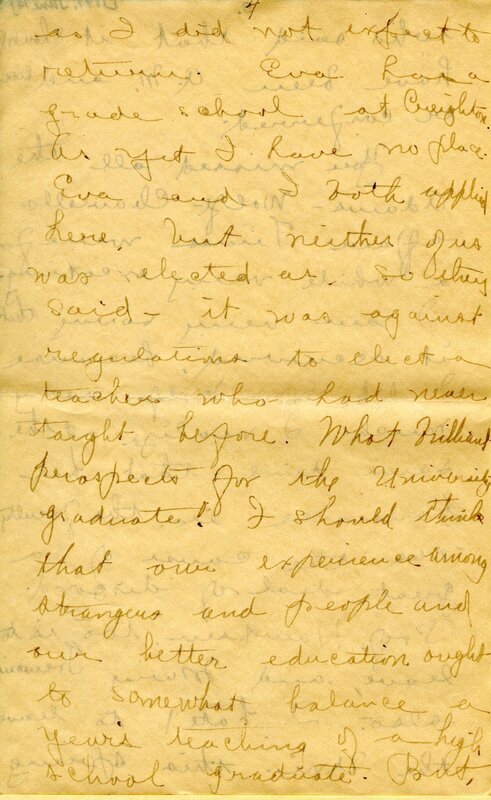 4
as I did not expect to
return. Eva has a
grade school at Creighton.
As yet I have no place.
Eva and I both applied
here, but neither of us
was elected as - so they
said - it was against
regulations to elect a
teacher who had never
taught before. What brilliant
prospects for the University
graduate! I should think
that our experience among
strangers and people and
our better education ought
to somewhat balance a
years teaching of a high
school graduate. But,